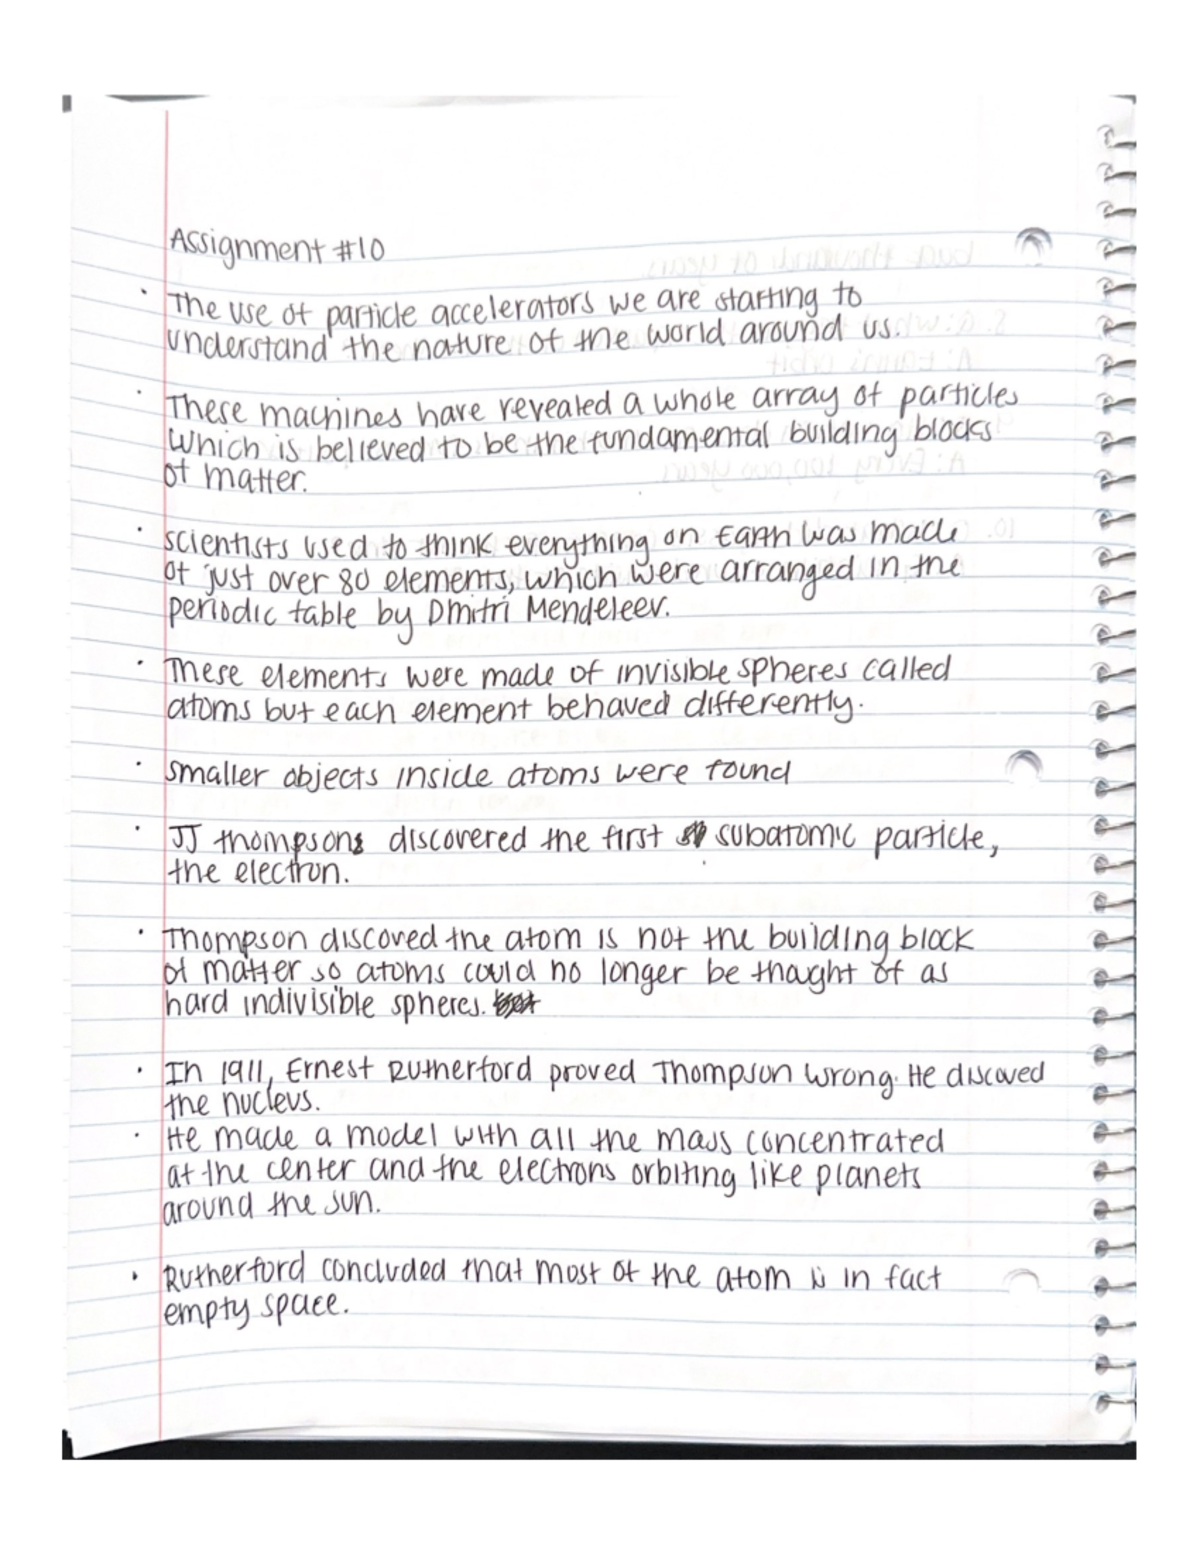 Assignment #10
· The use of particle accelerators we are starting to
understand the nature of the world around us.
· These machines have revealed a whole array of particles
which is believed to be the fundamental building blocks
of matter.
· scientists used to think everything on Earth was made
of just over 80 elements, which were arranged in the
periodic table by Dmitri Mendeleev.
· These elements were made of invisible spheres called
atoms but each element behaved differently.
· smaller objects inside atoms were found
· JJ thompsons discovered the first subatomic particle,
the electron.
· Thompson discoved the atom is not the building block
of matter so atoms could no longer be thaught of as
hard indivisible spheres.
· In 1911, Ernest Rutherford proved Thompson wrong. He discoved
the nucleus.
· He made a model with all the mass concentrated
at the center and the electrons orbiting like planets
around the sun.
· Rutherford concluded that most of the atom is in fact
empty space.